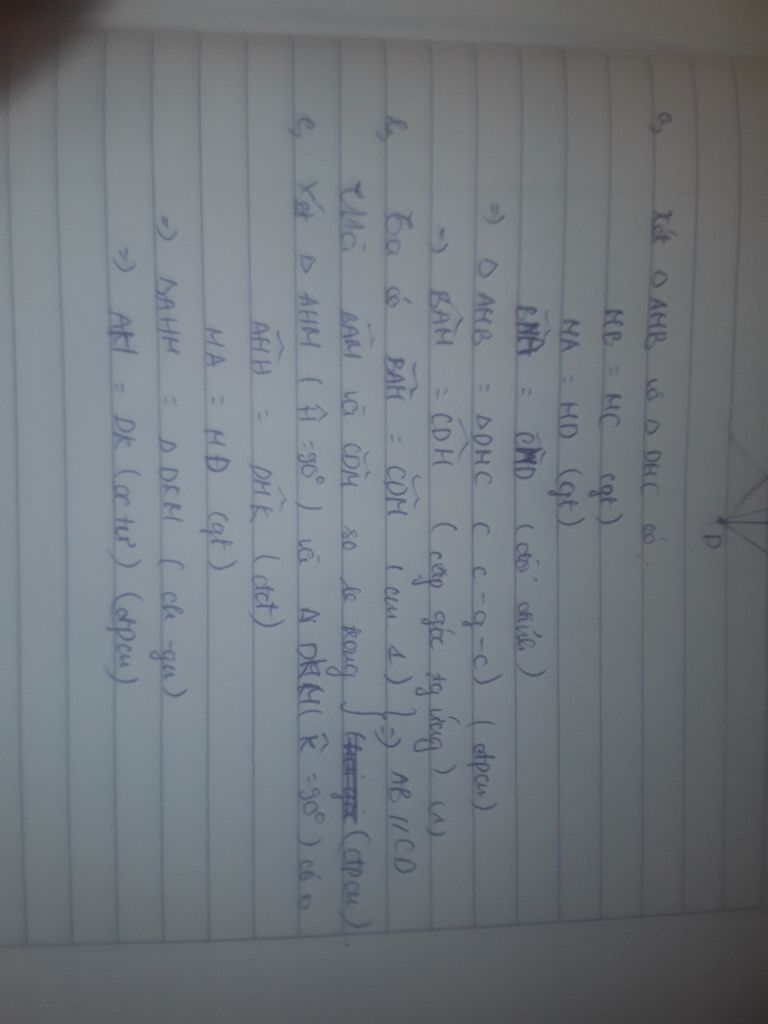 D
a, Xét Δ AMB và Δ DMC có:
MB = MC (gt)
MA = MD (gt)
= (đối đỉnh)
=) Δ AMB = Δ DMC ( c - g - c) ( đpcm)
=) BAM = CDM ( cặp góc tg ứng) (1)
b, Ta có BAM = CDM ( cm 1) } =) AB // CD
Mà BAM và CDM so le trong } (đpcm).
c, Xét Δ AHM ( H = 90° ) và Δ DKM ( K = 90° ) có
AMH = DMK ( đđ)
MA = MD (gt)
=) ΔAHM = Δ DKM ( ch - gn)
=) AH = DK (2c tư) (đpcm)